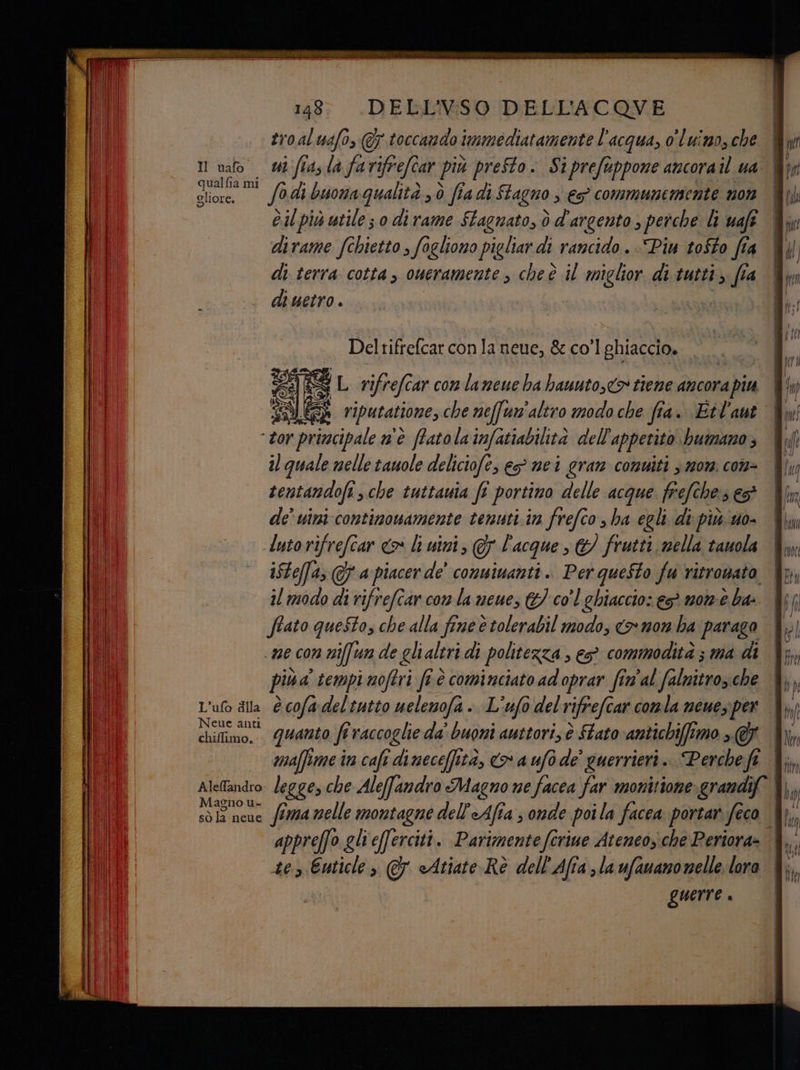 148 DELL'VSO DELL'ACQVE
tro al uaso, & toccando immediatamente l'acqua, o'l uino, che
Il uaso
qual sia mi
gliore.
ui sia, la fa rifrescar più presto. Si presuppone ancora il ua
so di buona qualità, ò sia di stagno, & communemente non
è il più utile; o di rame stagnato, ò d'argento, perche li uasi
di rame schietto, sogliono pigliar di rancido. Piu tosto sia
di terra cotta, oueramente, che è il miglior di tutti, sia
di uetro.
Del rifrescar con la neue, & co'l ghiaccio.
IL rifrescar con la neue ha hauuto, & tiene ancora piu
riputatione, che nessun'altro modo che sia. Et l'aut
tor principale n'è stato la insatiabilità dell'appetito humano,
il quale nelle tauole deliciose, & nei gran conuiti, non con-
tentandosi, che tuttauia si portino delle acque fresche, &
de' uini continouamente tenuti in fresco, ha egli di più uo-
luto rifrescar & li uini, & l'acque, & frutti nella tauola
istessa, & a piacer de' conuiuanti. Per questo fu ritrouato
il modo di rifrescar con la neue, & co'l ghiaccio: & non è ba-
stato questo, che alla fine è tolerabil modo, & non ha parago
ne con nissun de gli altri di politezza, & commodità; ma di
più a' tempi nostri si è cominciato ad oprar sin'al salnitro, che
L'uso dlla
Neue anti
chissimo.
è cosa del tutto uelenosa. L'uso del rifrescar con la neue, per
quanto si raccoglie da' buoni auttori, è stato antichissimo, &
massime in casi di necessità, & a uso de' guerrieri. Perche si
Alessandro
Magno u-
sò la neue
legge, che Alessandro Magno ne facea far monitione grandis
sima nelle montagne dell'Asia, onde poi la facea portar seco
appresso gli esserciti. Parimente scriue Ateneo, che Periora-
te, Euticle, & Atiate Rè dell'Asia, la usauano nelle loro
guerre.